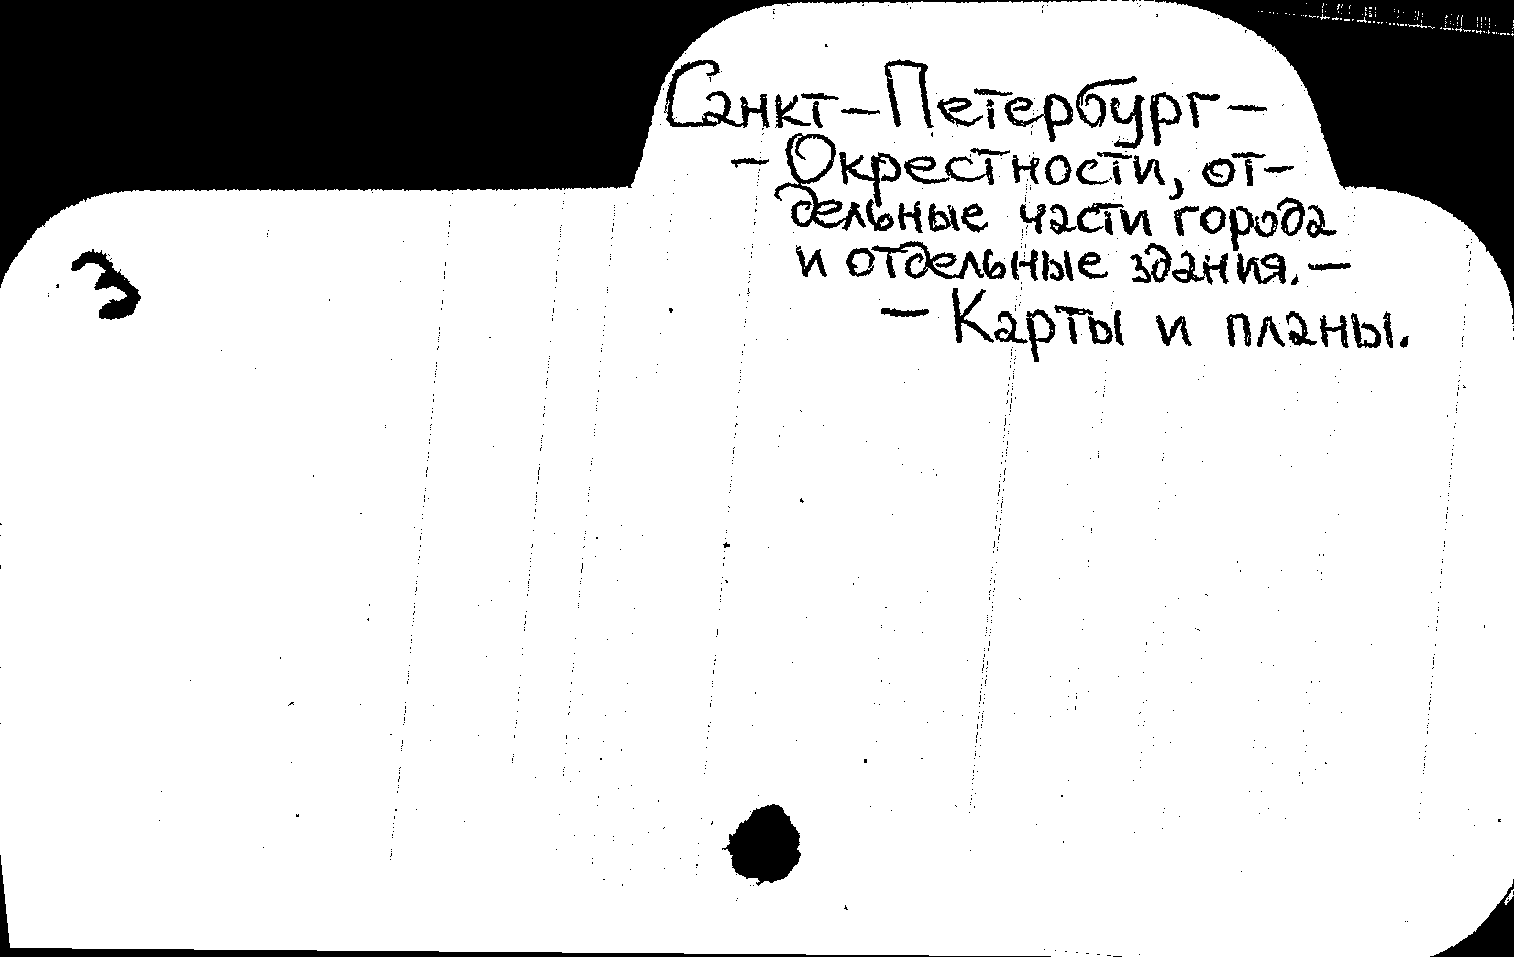 Санкт-Петербург-
- Окрестности, от-
дельные части города
и отдельные здания. -
- Карты и планы.
3